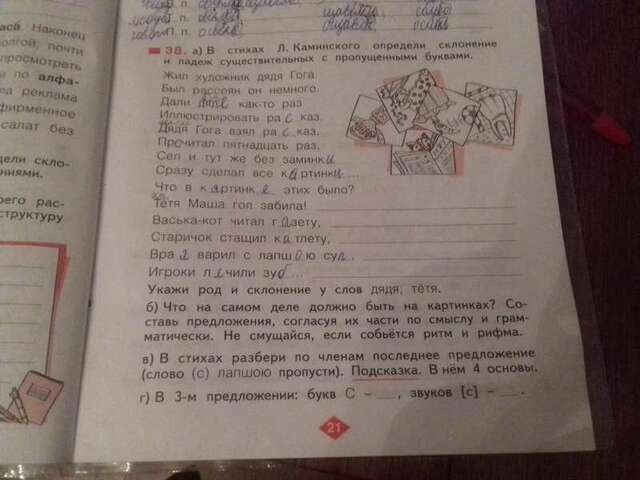 асай. Наконец
долгой почти
просмотреть
ы по алфа-
од реклама
фирменное
салат без
дели скло-
ниями.
рего рас-
структуру
38. а) В стихах Л. Каминского определи склонение
и падеж существительных с пропущенными буквами.
Жил художник дядя Гога.
Был рассеян он немного.
Дали как-то раз
Иллюстрировать рас каз.
Дядя Гога взял рас каз,
Прочитал пятнадцать раз,
Сел и тут же без заминки
Сразу сделал все картинки...
Что в картинке этих было?
Тётя Маша гол забила!
Васька-кот читал газету,
Старичок стащил котлету,
Врач варил с лапшою суп,
Игроки лечили зуб...
Укажи род и склонение у слов дядя, тётя.
б) Что на самом деле должно быть на картинках? Со-
ставь предложения, согласуя их части по смыслу и грам-
матически. Не смущайся, если собьётся ритм и рифма.
в) В стихах разбери по членам последнее предложение
(слово (с) лапшою пропусти). Подсказка. В нём 4 основы.
г) В 3-м предложении: букв С – __, звуков [с] – __.
21